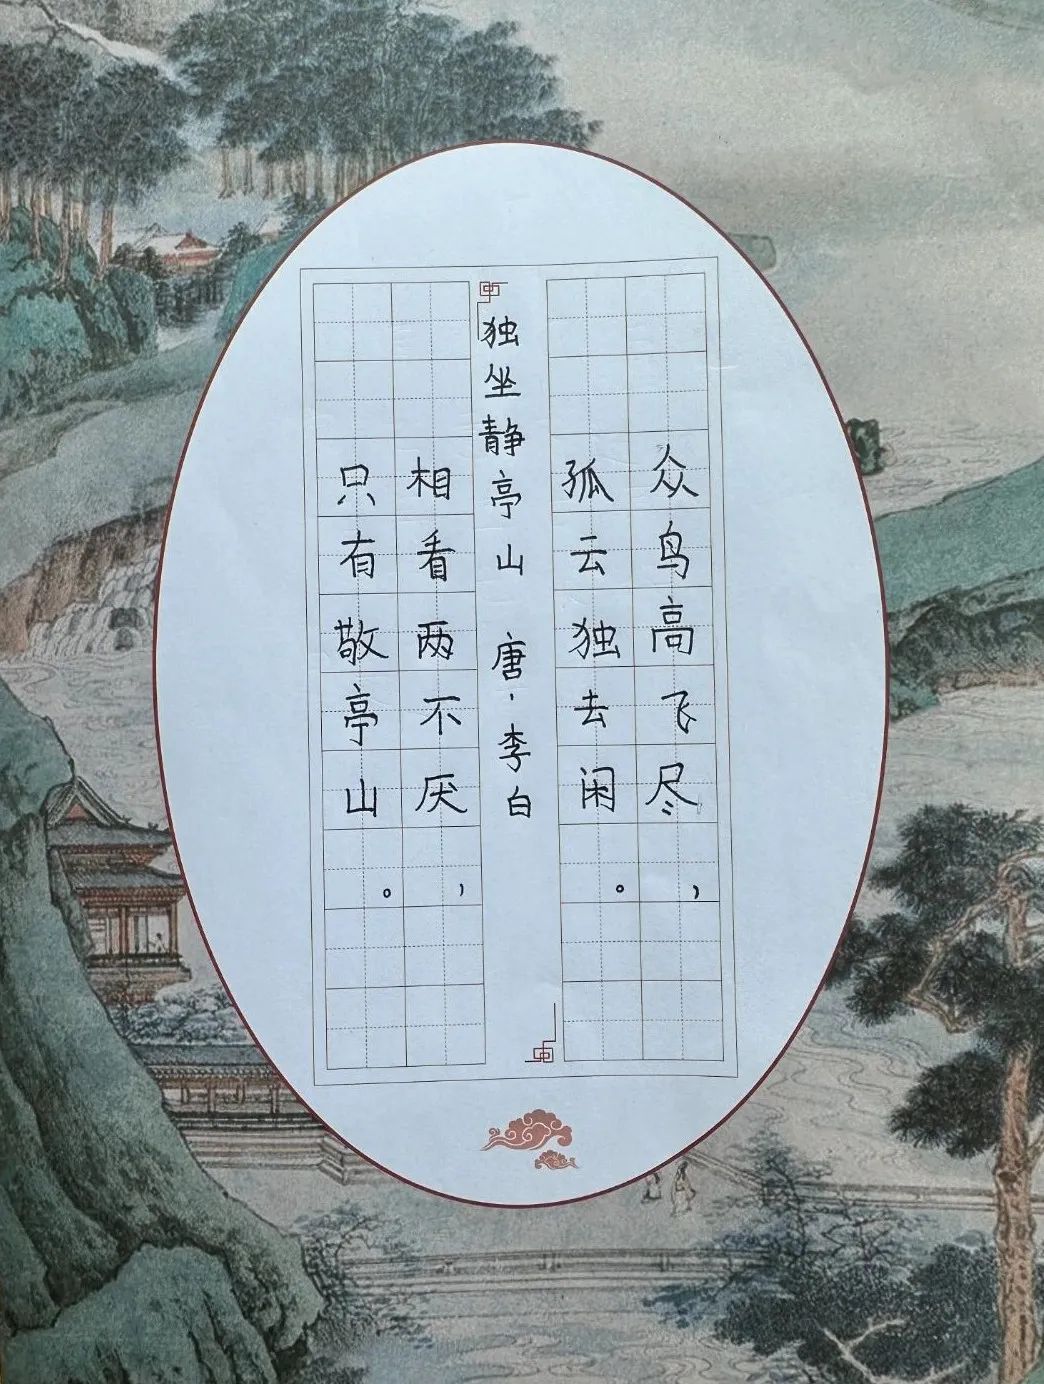 众鸟高飞尽，
孤云独去闲。
独坐静亭山 唐·李白
相看两不厌，
只有敬亭山。